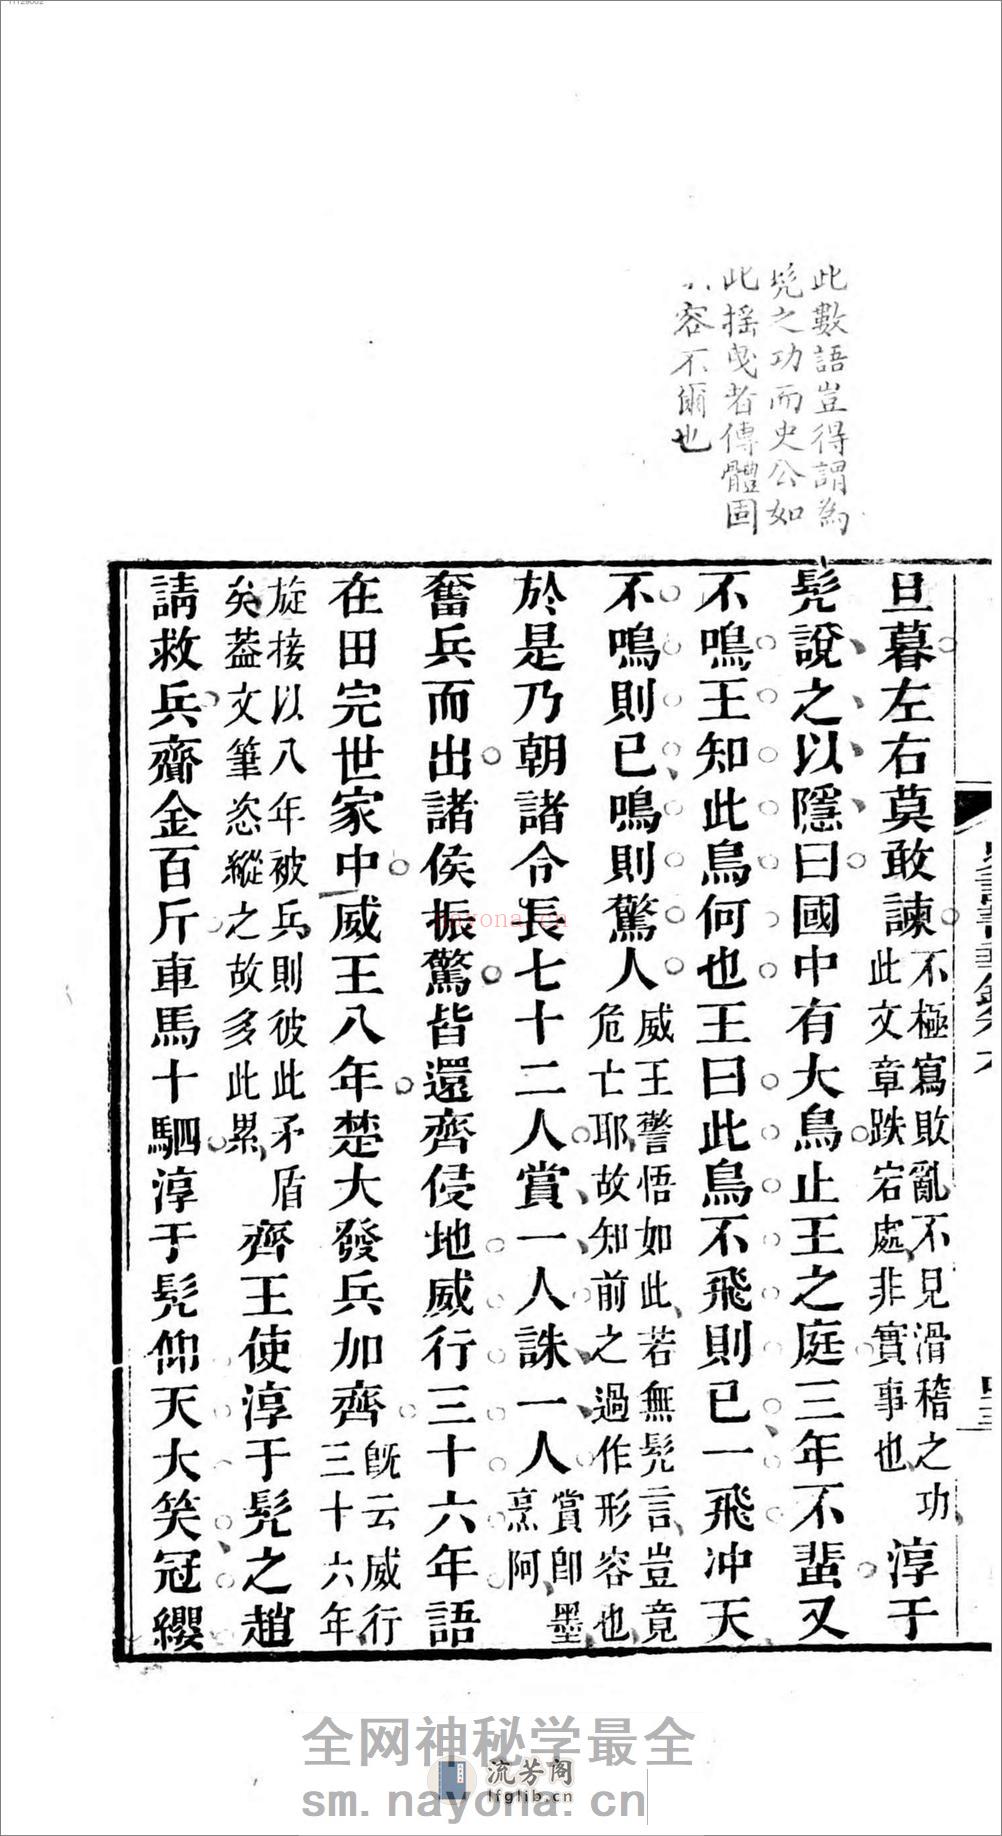 11129002
此數語豈得謂為
髡之功而史公如
此搖曳者傳體固
容不爾也
旦暮左右莫敢諫不極寫敗亂不見滑稽之功此文章跌宕處非實事也淳于
髡說之以隱曰國中有大鳥止王之庭三年不蜚又
不鳴王知此鳥何也王曰此鳥不飛則已一飛沖天
不鳴則已鳴則驚人威王警悟如此若無髡言豈竟危亡耶故知前之過作形容也
於是乃朝諸令長七十二人賞一人誅一人賞即墨烹阿
奮兵而出諸侯振驚皆還齊侵地威行三十六年語
在田完世家中威王八年楚大發兵加齊既云威行三十六年
旋接以八年被兵則彼此矛盾矣蓋文筆恣縱之故多此累齊王使淳于髡之趙
請救兵齎金百斤車馬十駟淳于髡仰天大笑冠纓
nayona.cn
全网神秘学最全
流芳阁
lfglib.cn
sm.nayona.cn